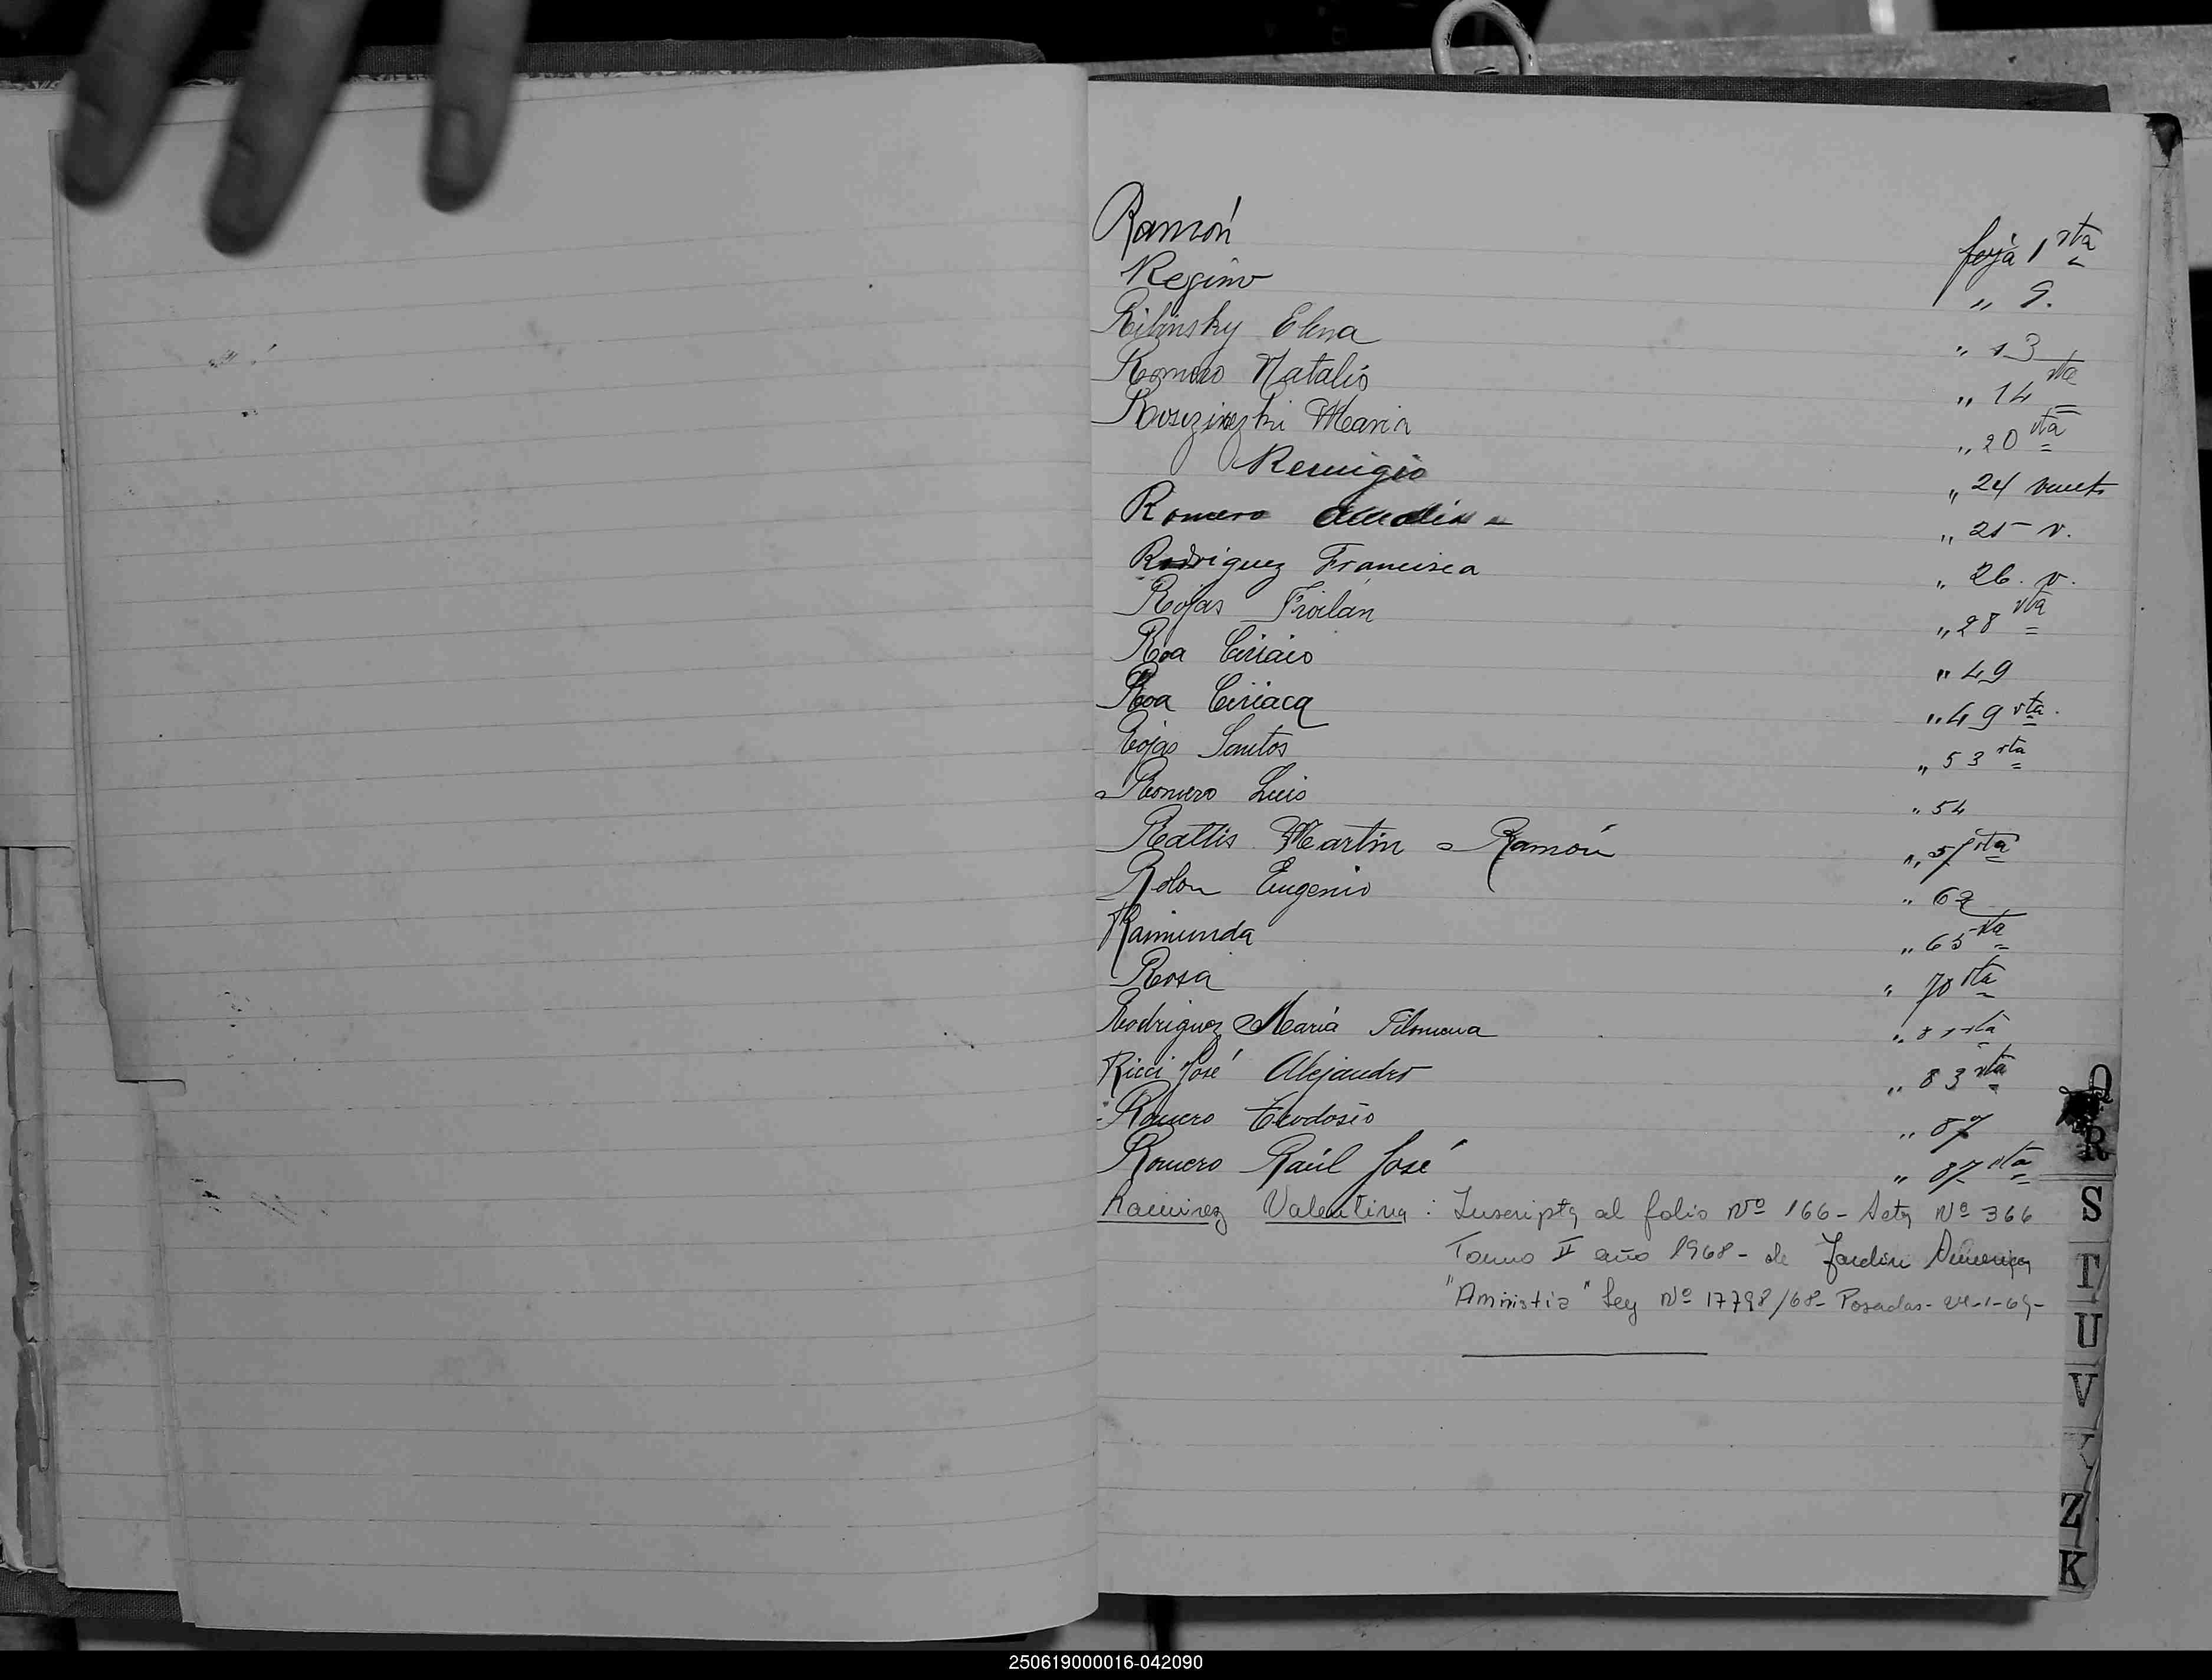 Ramón foja 1 vta
Regino " 9.
Ribinsky Elena " 13
Romero Natalio " 14 vta
María " 20 vta
Remigio " 24 vuelt
Romero " 25 v.
Rodriguez Francisca " 26. v.
Rojas Froilan " 28 vta
Roa Ciriaco " 49
Roa Ciriaca " 49 vta.
Rojas Santos " 53 vta
Romero Luis " 54
Rattis Martin Ramón " 57 vta
Rolon Eugenio " 62
Raimunda " 65 vta
Rosa " 70 vta
Rodriguez María Filomena " 81 vta
Ricci José Alejandro " 83 vta
Romero Teodosio " 87
Romero Raúl José " 87 vta
Ramirez Valentina : Inscripta al folio Nº 166 - Acta Nº 366
Tomo II año 1968 - de Jardin America
"Amnistia" Ley Nº 17798/68 - Posadas - 21-1-69-
Q
R
S
T
U
V
Y
Z
K
250619000016-042090